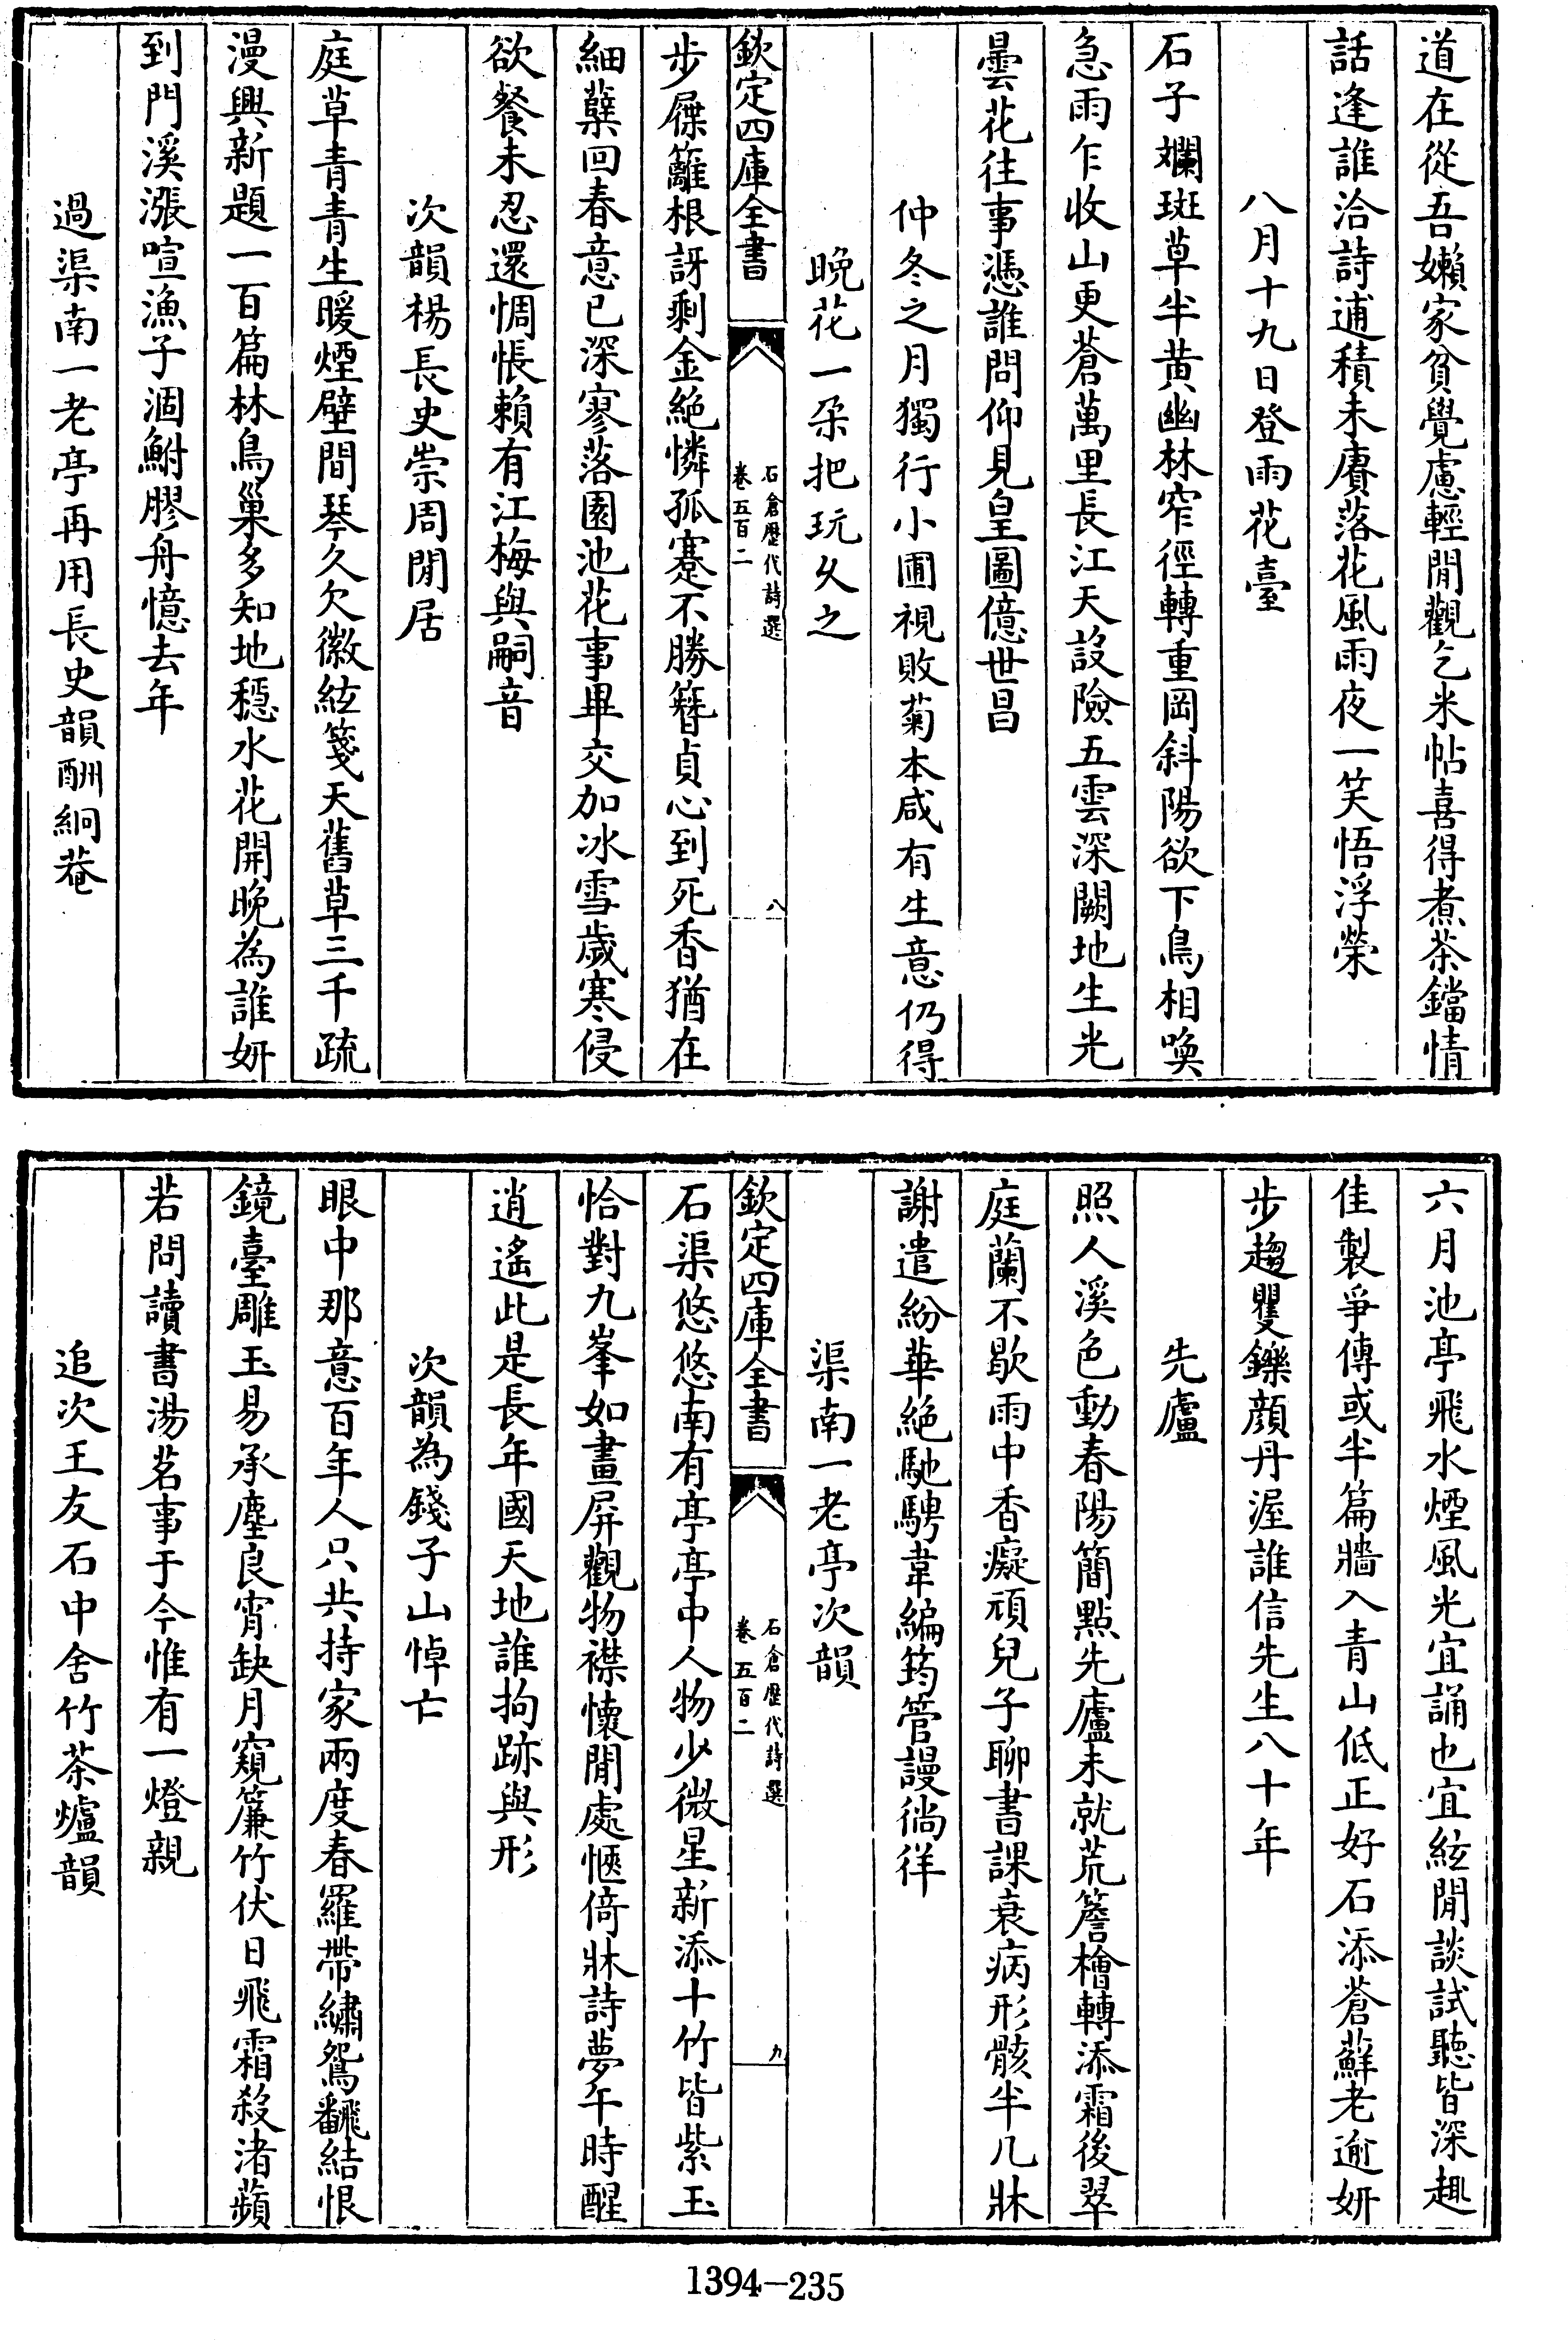 道在從吾嬾家貧覺慮輕閒觀乞米帖喜得煮茶鐺情
話逢誰洽詩逋積未賡落花風雨夜一笑悟浮榮
八月十九日登雨花臺
石子斕斑草半黄幽林窄徑轉重岡斜陽欲下鳥相喚
急雨乍收山更蒼萬里長江天設險五雲深闕地生光
曇花往事憑誰問仰見皇圖億世昌
仲冬之月獨行小圃視敗菊本咸有生意仍得
晚花一朶把玩久之
欽定四庫全書
石倉歷代詩選
卷五百二
八
步屧籬根訝剩金絶憐孤蹇不勝簪貞心到死香猶在
細蘖回春意已深寥落園池花事畢交加冰雪歲寒侵
欲餐未忍還惆悵賴有江梅與嗣音
次韻楊長史崇周閒居
庭草青青生暖煙壁間琴久欠徽絃箋天舊草三千疏
漫興新題一百篇林鳥巢多知地穩水花開晚為誰妍
到門溪漲喧漁子涸鮒膠舟憶去年
過渠南一老亭再用長史韻酬絅菴
六月池亭飛水煙風光宜誦也宜絃閒談試聽皆深趣
佳製爭傳或半篇牆入青山低正好石添蒼蘚老逾妍
步趨矍鑠顔丹渥誰信先生八十年
先廬
照人溪色動春陽簡點先廬未就荒簷檜轉添霜後翠
庭蘭不歇雨中香癡頑兒子聊書課衰病形骸半几牀
謝遣紛華絶馳騁韋編筠管謾徜徉
渠南一老亭次韻
欽定四庫全書
石倉歷代詩選
卷五百二
九
石渠悠悠南有亭亭中人物少微星新添十竹皆紫玉
恰對九峯如畫屏觀物襟懷閒處愜倚牀詩夢午時醒
逍遙此是長年國天地誰拘跡與形
次韻為錢子山悼亡
眼中那意百年人只共持家兩度春羅帶繡鴛翻結恨
鏡臺雕玉易承塵良宵缺月窺簾竹伏日飛霜殺渚蘋
若問讀書湯茗事于今惟有一燈親
追次王友石中舍竹茶爐韻
1394-235